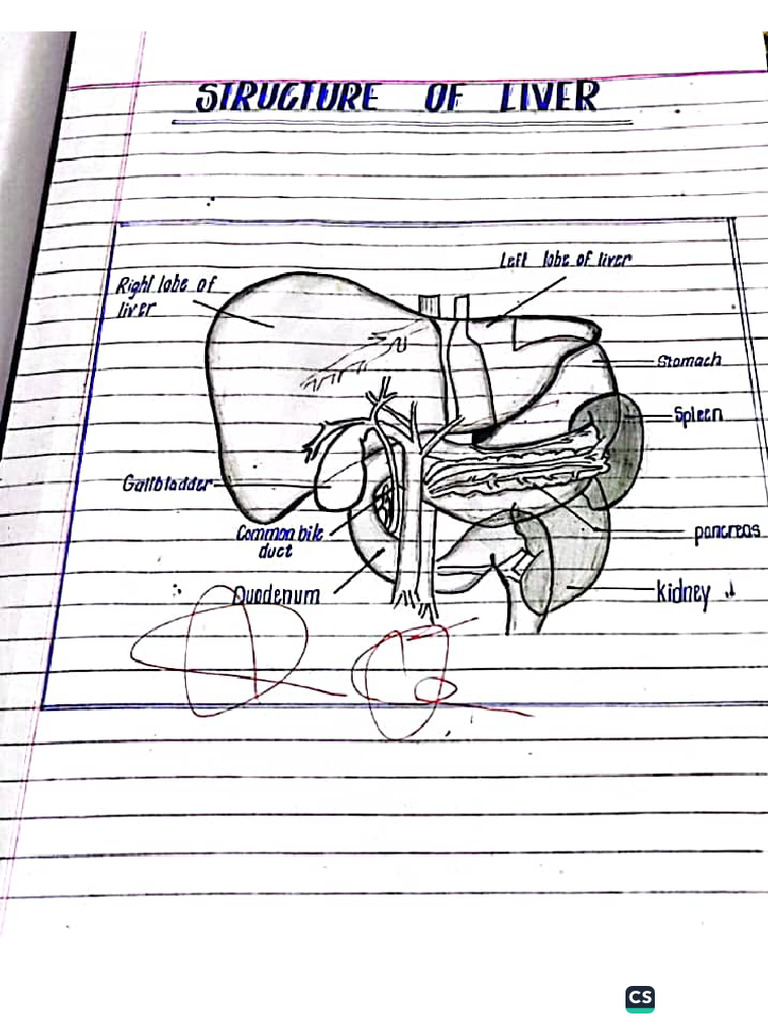 STRUCTURE OF LIVER
Left lobe of liver
Right lobe of
liver
Stomach
Spleen
Gallbladder
Common bile
duct
pancreas
Duodenum
kidney
CS